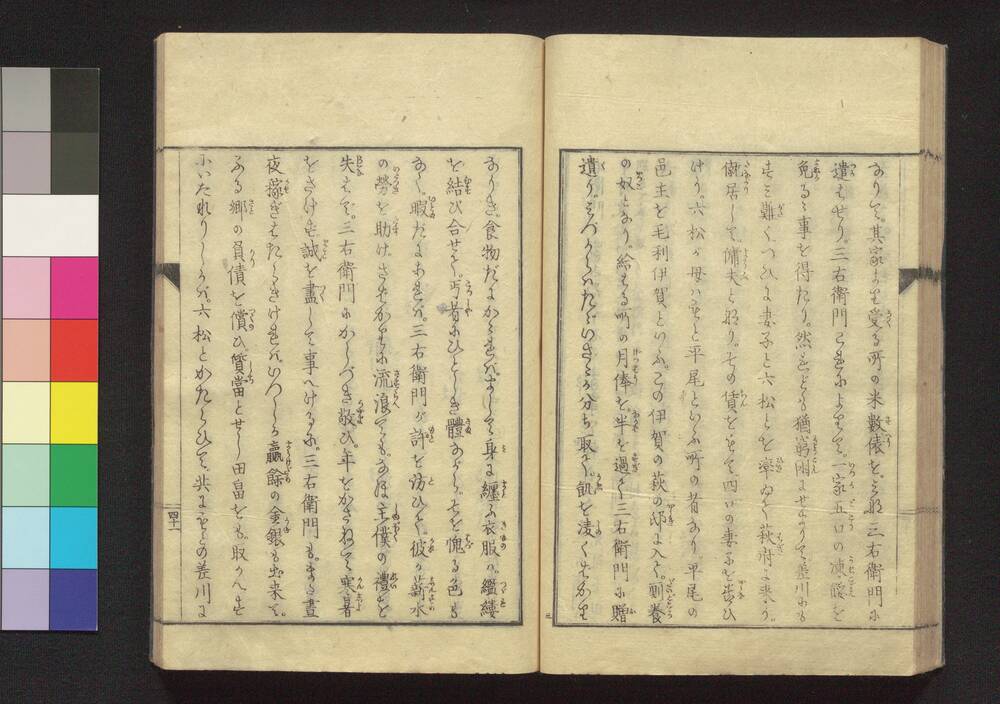 なりとて。其家より受る所の米数俵を。みな三右衛門に
遣はせり。三右衛門これによりて。一家五口の凍餒を
免るゝ事を得たり。然れども猶窮困にせまりて差川にも
すミ難く。つひに妻子と六松とを率ゐて萩府に来り。
僦居して。傭夫と成り。その賃をもて。四口の妻子を養ひ
けり。六松が母ハもと平尾といふ所の者なり。平尾の
邑主を毛利伊賀といふ。この伊賀の萩の邸に入て。厠養
の奴となり。給はる所の月俸を。半を過て三右衛門に贈
遺り。ミづからハいたくいさゝか分ち取て。飢を凌くばかり
なりき。食物だにかゝれば。まして身に纏ふ衣服ハ。繿縷
を結び合せて。丐者にひとしき體なれど。それを愧る色も
なく。暇だにあれば。三右衛門が許を訪ひて。彼が薪水
の労を助け。さばかりに流浪ても。なほ主僕の禮を
失はず。三右衛門にかしづき敬ひ。年をかさねて寒暑
をさけず。誠を盡して事へけるに。三右衛門も。また晝
夜稼ぎはたらきければ。いつしか贏餘の金銀も出来て。
ふる郷の負債を償ひ。質當とせし田畠をも。取かへす
にいたれりしかば。六松とかたらひて。共にもとの差川に
四十一